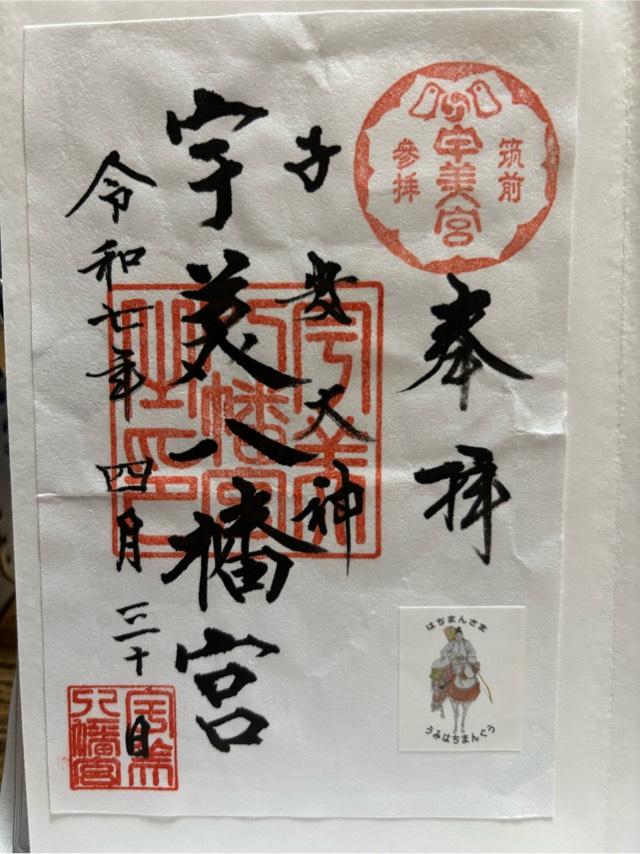 筑前
宇美宮
參拝
奉拝
子安大神
宇美八幡宮
令和七年四月三十日
宇美
八幡宮
はちまんさま
うみはちまんぐう